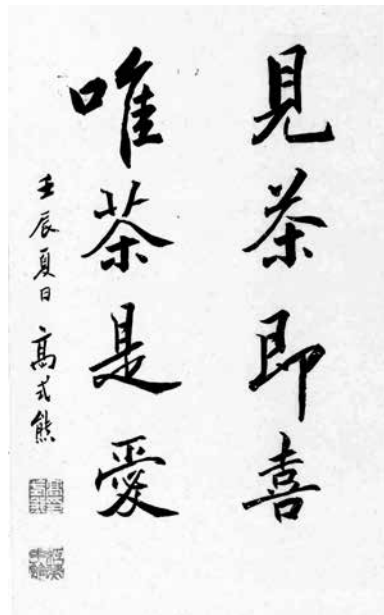 見茶即喜
唯茶是愛
壬辰夏日 高式熊